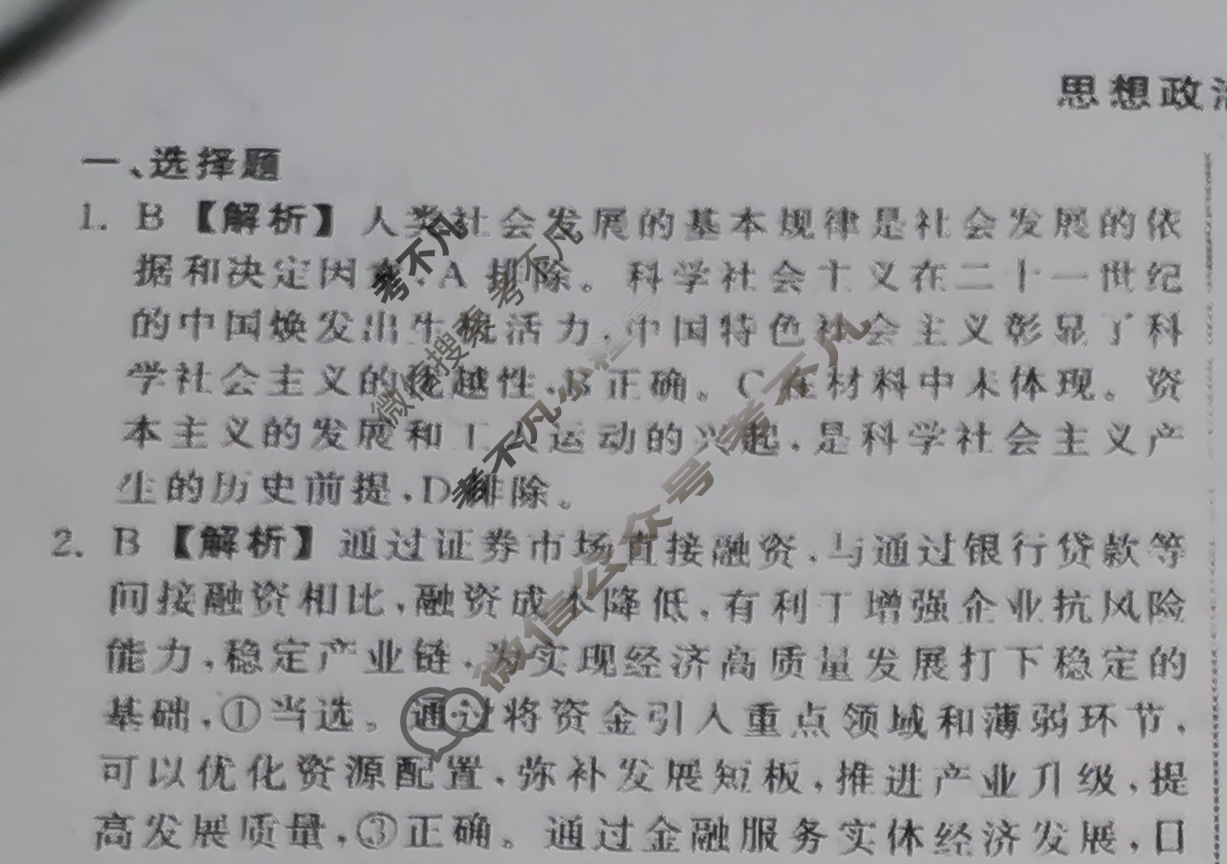 思想政治
一、选择题
1. B 【解析】人类社会发展的基本规律是社会发展的依
据和决定因素,A 排除。科学社会主义在二十一世纪
的中国焕发出生机活力,中国特色社会主义彰显了科
学社会主义的优越性,B 正确。C 在材料中未体现。资
本主义的发展和工人运动的兴起,是科学社会主义产
生的历史前提,D 排除。
2. B 【解析】通过证券市场直接融资,与通过银行贷款等
间接融资相比,融资成本降低,有利于增强企业抗风险
能力,稳定产业链,为实现经济高质量发展打下稳定的
基础,①当选。通过将资金引入重点领域和薄弱环节,
可以优化资源配置,弥补发展短板,推进产业升级,提
高发展质量,③正确。通过金融服务实体经济发展,
考不凡
微信搜索 考不凡
考不凡小程序
微信公众号 考不凡